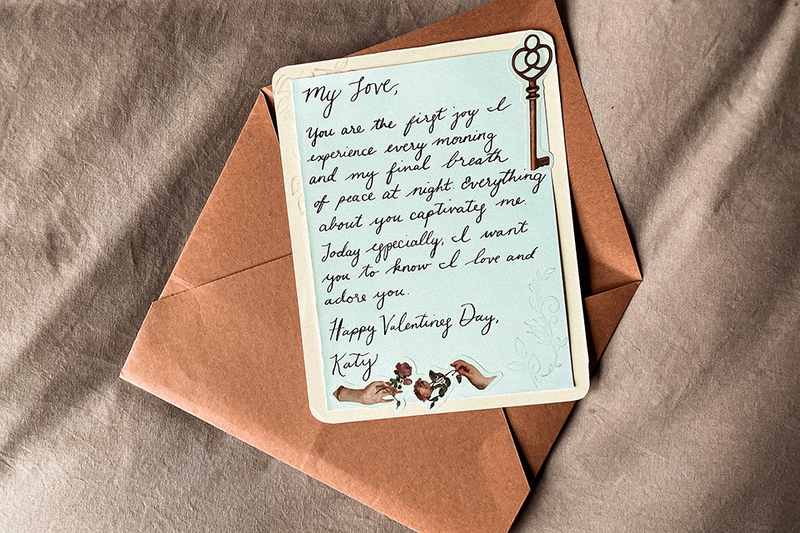 My Love,
You are the first joy I
experience every morning
and my final breath
of peace at night. Everything
about you captivates me.
Today especially, I want
you to know I love and
adore you.
Happy Valentines Day,
Katy